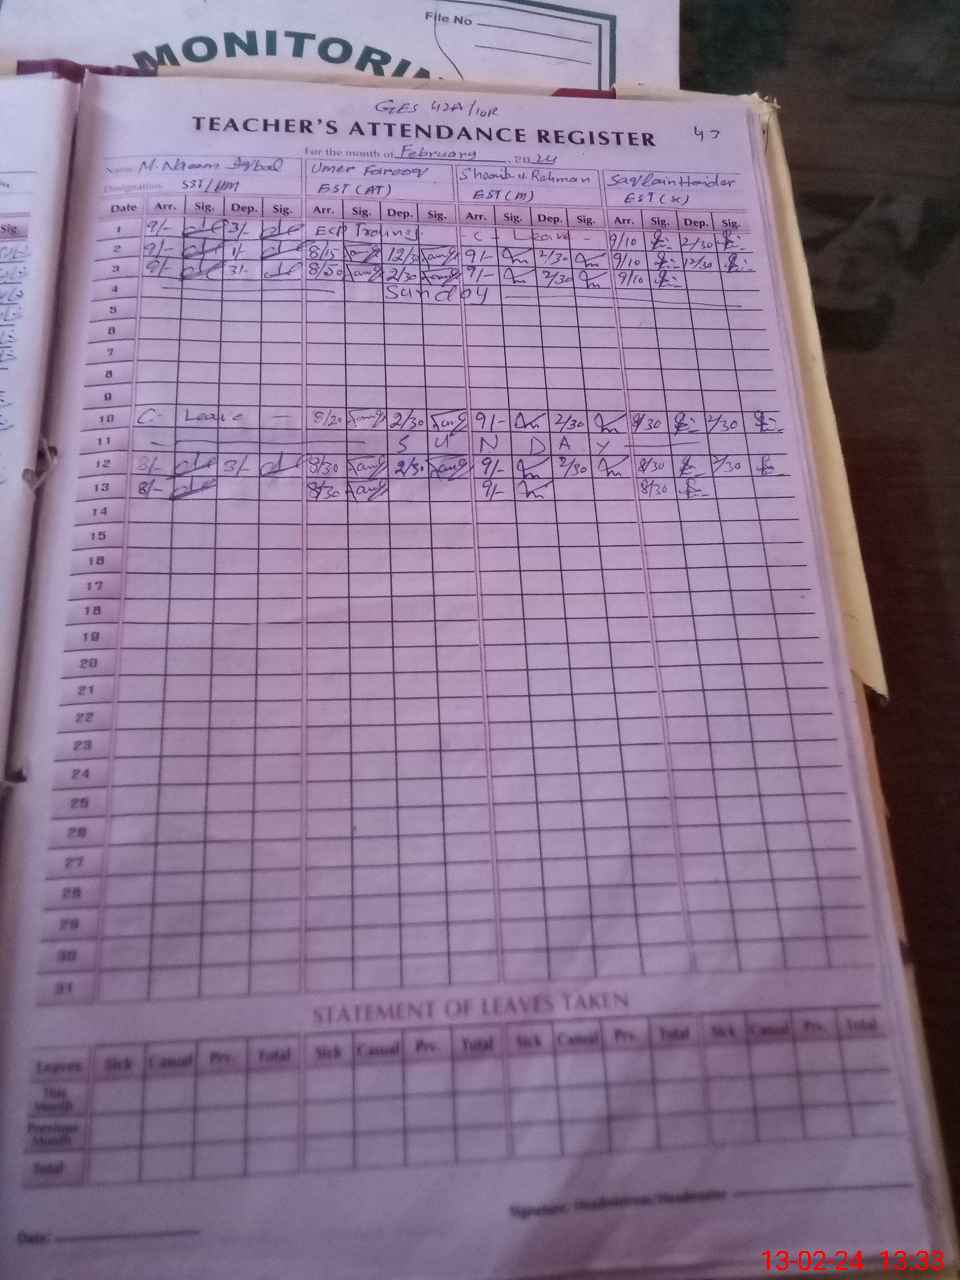 File No
MONITORIN
GES 42A/10R
TEACHER'S ATTENDANCE REGISTER 47
For the month of February 2024
Name M. Naeem Iqbal Umer Farooq Shoaib u. Rehman Saqlain Haider
Designation SST/HM EST (AT) EST (M) EST (X)
Date Arr. Sig. Dep. Sig. Arr. Sig. Dep. Sig. Arr. Sig. Dep. Sig. Arr. Sig. Dep. Sig.
1 9/- 3/- ECP C - Leave - 9/10 2/30
2 9/- 1/- 8/15 12/30 9/- 2/30 9/10 12/30
3 9/- 3/- 8/20 2/30 9/- 2/30 9/10
4 Sunday
5
6
7
8
9
10 C- Leave — 8/20 2/30 9/- 2/30 8/30 2/30
11 S U N D A Y
12 8/- 3/- 8/30 2/30 9/- 2/30 8/30 2/30
13 8/- 8/30 9/- 8/30
14
15
16
17
18
19
20
21
22
23
24
25
26
27
28
29
30
31
STATEMENT OF LEAVES TAKEN
Leaves Sick Casual Prv. Total Sick Casual Prv. Total Sick Casual Prv. Total Sick Casual Prv. Total
This Month
Previous Month
Total
Signature, Headmistress/Headmaster
Date:
13-02-24 13:33